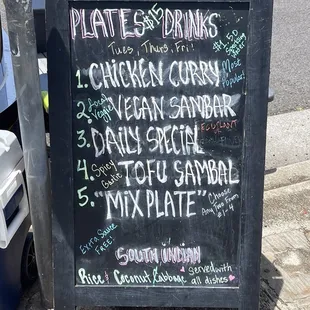 PLATES $15 DRINKS
Tues, Thurs, Fri!
$4.50
Sparkling
Water
1. CHICKEN CURRY
Most
Popular!
2. Local
Veggie
VEGAN SAMBAR
3. DAILY SPECIAL
EGGPLANT
4. Spicy
Garlic
TOFU SAMBAL
5. "MIX PLATE"
Choose
Any Two From
#1-4
Extra Sauce
FREE
SOUTH INDIAN
Rice & Coconut Cabbage
Served with
all dishes